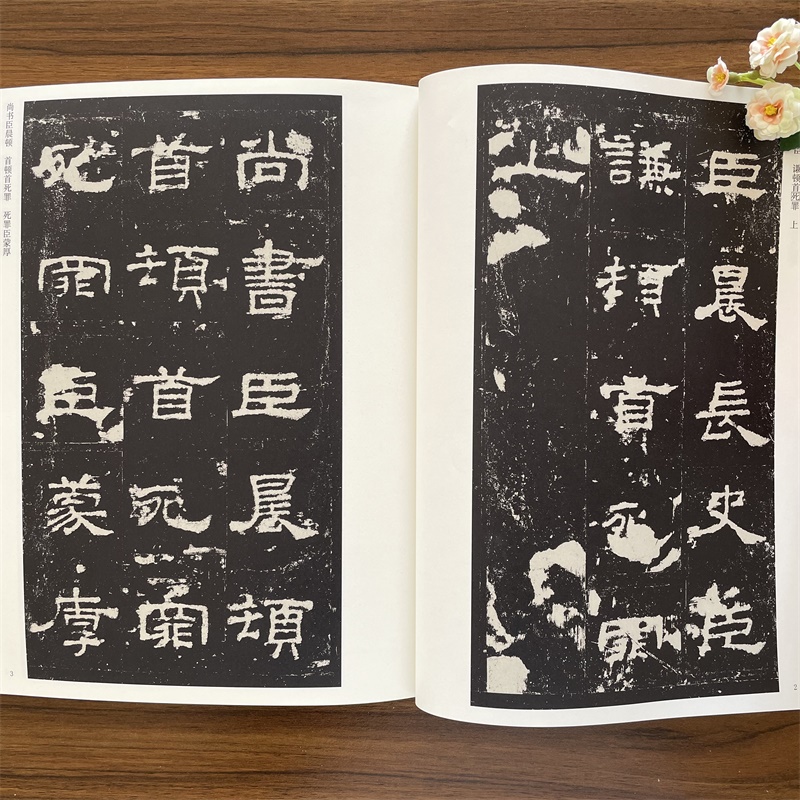 臣晨長史臣
謙頓首死罪
上
谦顿首死罪 上
2
尚書臣晨頓
首頓首死罪
死罪臣蒙厚
尚书臣晨顿 首顿首死罪 死罪臣蒙厚
3